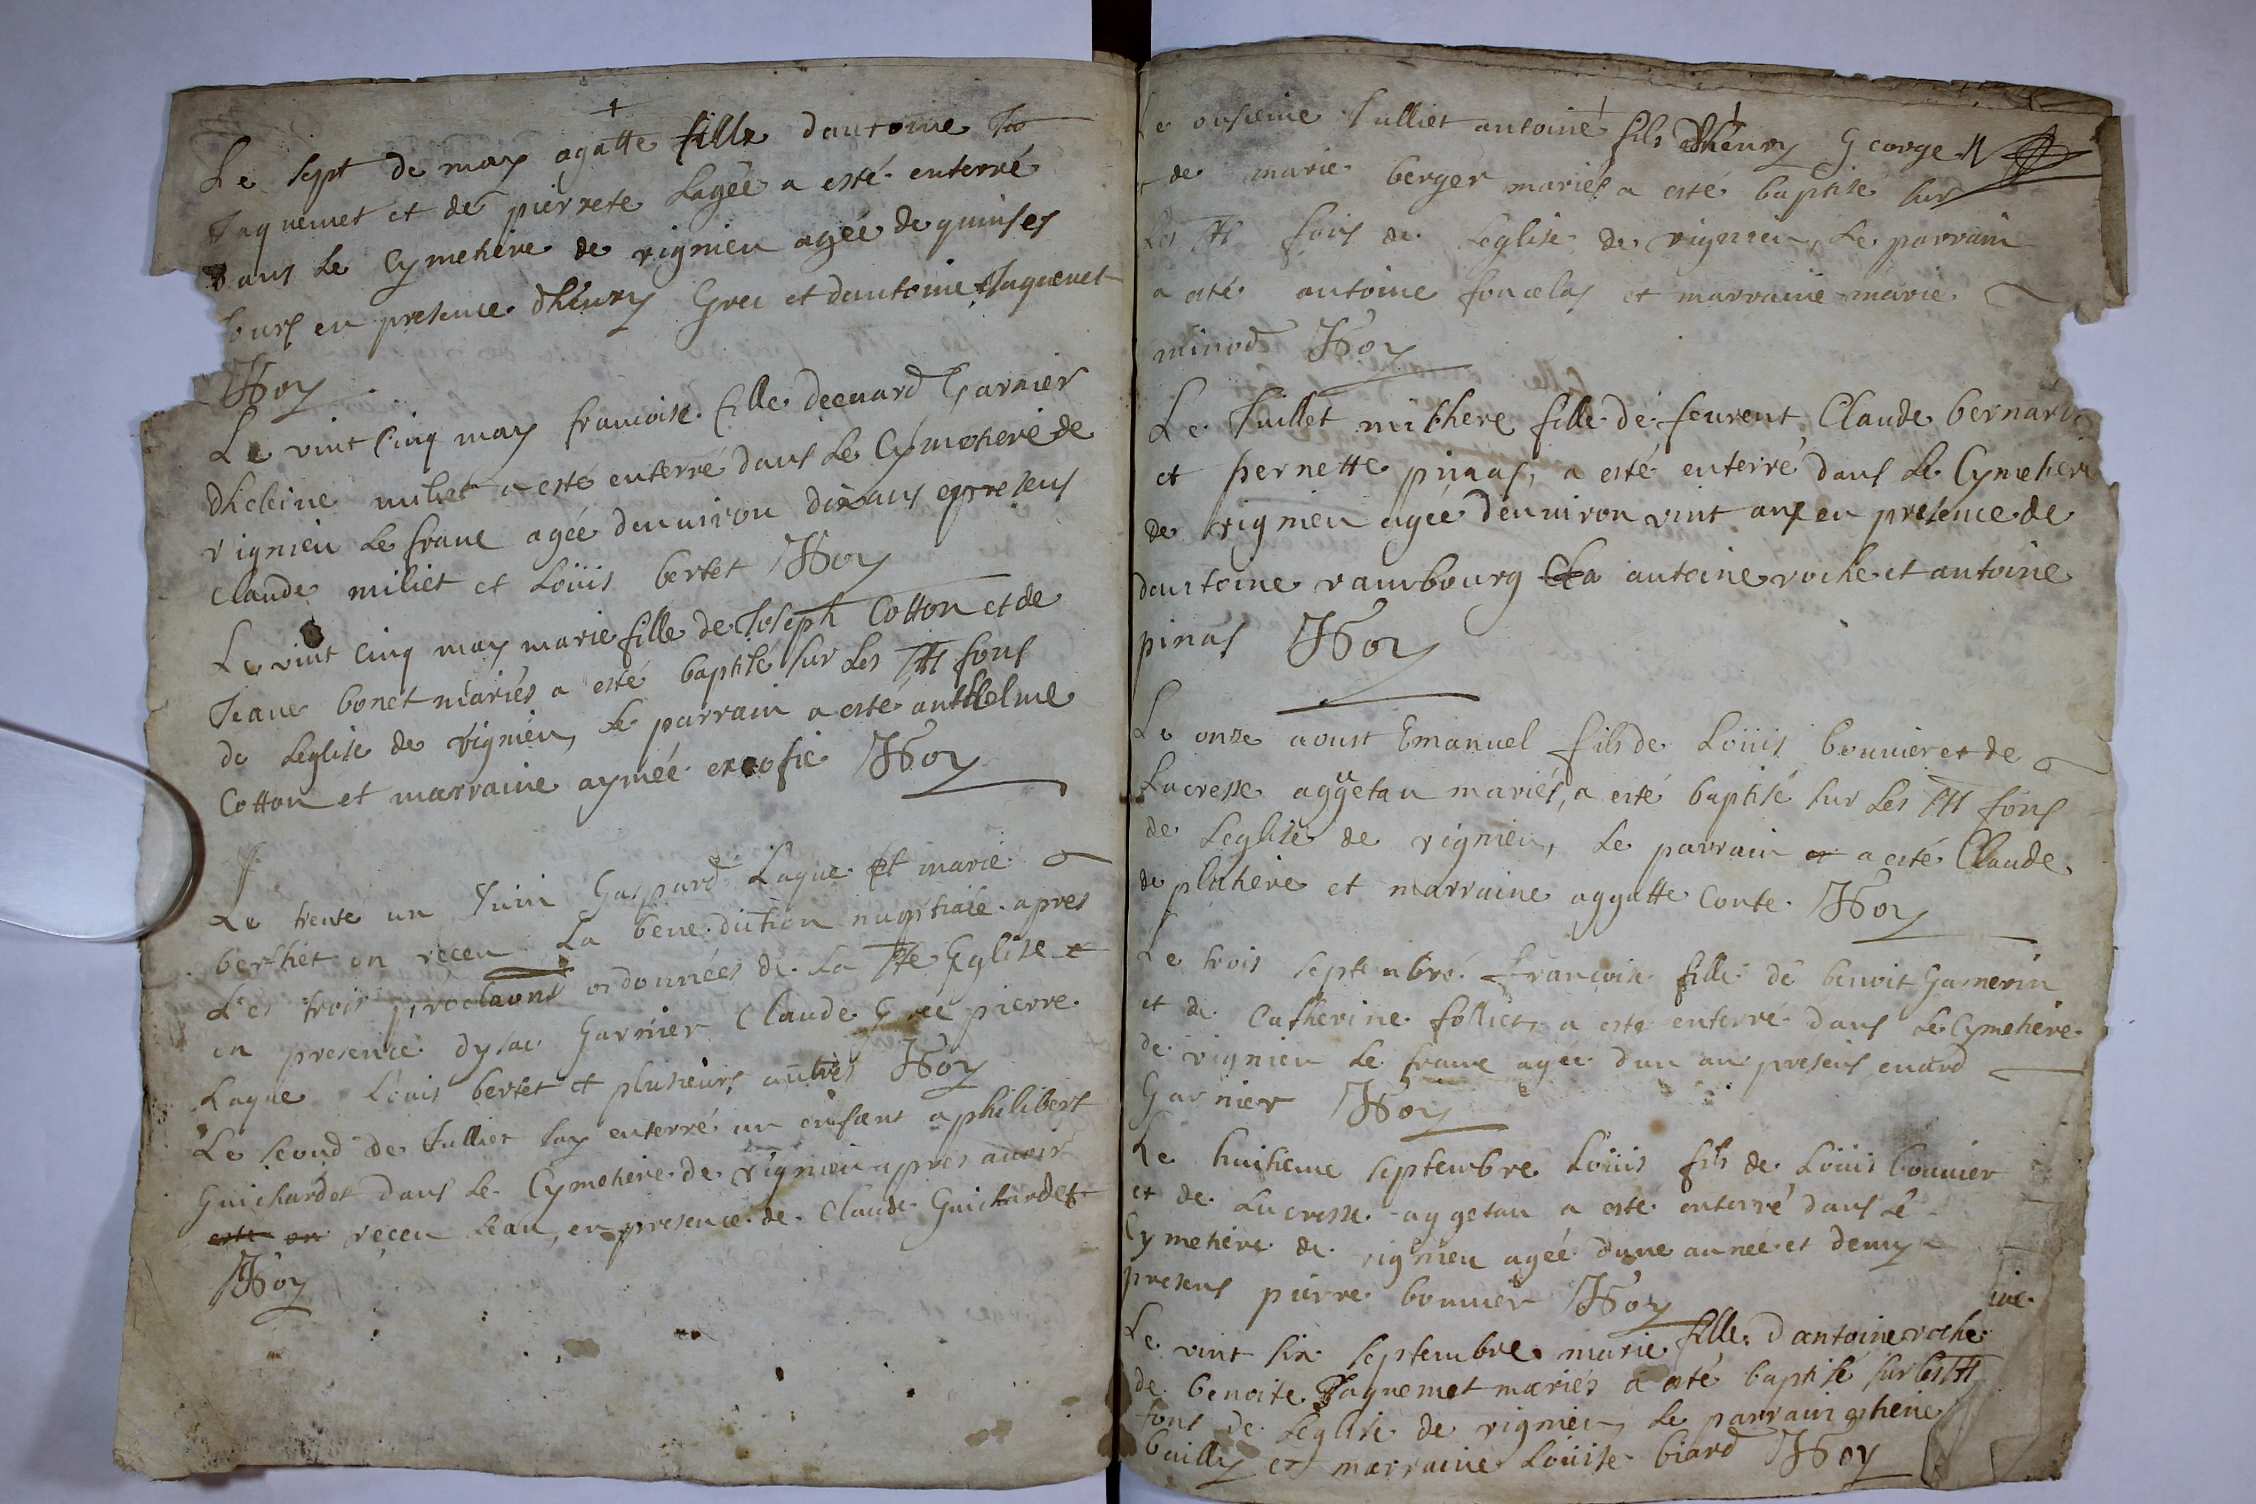 Le sept de may agatte fille dantoine
Jaquemet et de pierrete Lagée a esté enterré
dans le Cymetiere de vignieu agée de quinses
jours en presence dhéury Grec et dantoine Jaquemet
Roy
Le vint Cinq may francoise fille deenard Garnier
dheleine miliet a esté enterré dans Le Cymetiere de
vignieu Le franc agée denuiron dix ans presens
Claude miliet et Loüis bertet Roy
Le vint cinq may marie fille de Joseph Cotton et de
Jeane bonet mariés a esté baptisé sur Les Sts fons
de Leglise de vignieu, Le parrain a esté anthelme
Cotton et marraine aymée Roy
Le trente un Juin Gaspard Lague et marie
berthet on receu La benediction nuptiale apres
Les trois ordonnées de La Ste Eglise
en presence dysac Garnier Claude Grec pierre
Lague Louis bertet et plusieurs autres Roy
Le second de Julliet Jay enterré un enfant a philibert
Guichardet dans Le Cymetiere de vignieu apres auoir
receu Leau, en presence de Claude Guichardet
Roy
Le onsieme Julliet antoine fils dhéury George
et de marie berger mariés a esté baptisé sur
Les Sts fons de Leglise de vignieu, Le parrain
a esté antoine et marraine marie
minod Roy
Le Juillet fille de feurent Claude bernard
et pernette pinas, a esté enterré dans Le Cymetiere
de vignieu agée denuiron vint ans en presence de
dantoine rambourg antoine roche et antoine
pinas Roy
Le onze aoust Emanuel fils de Loüis bouuier et de
Lucresse aggetan mariés, a esté baptisé sur Les Sts fons
de Leglise de vignieu, Le parrain a esté Claude
de plutiere et marraine aggatte Conte Roy
Le trois septenbre francoise fille de benoit Gamerin
et de Catherine folliet a esté enterré dans Le Cymetiere
de vignieu Le franc agée dun an presens enard
Garnier Roy
Le huitieme septembre Loüis fils de Loüis bouuier
et de Lucresse aggetan a esté enterré dans Le
Cymetiere de vignieu agée dune année et demy
presens pierre bouuier Roy
Le vint six septembre marie fille dantoine roche
de benoite Jaquemet mariés a esté baptisé sur les Sts
fons de Leglise de vignieu, Le parrain
bailly et marraine Loüise biard Roy